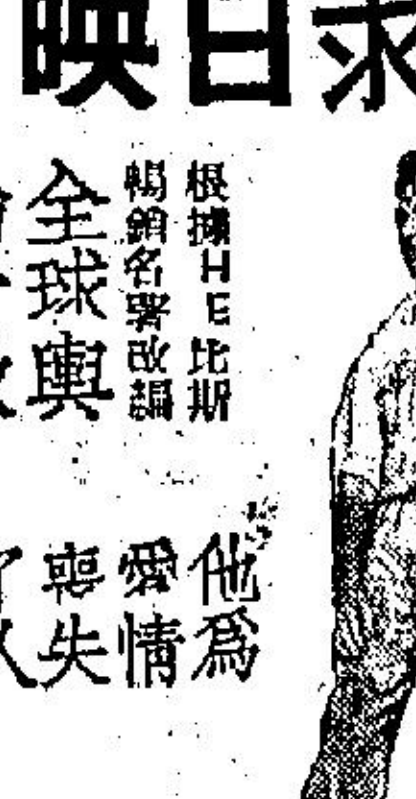 映日求
根據HE比斯
暢銷名著改編
全球輿
他為
愛情
喪失
了